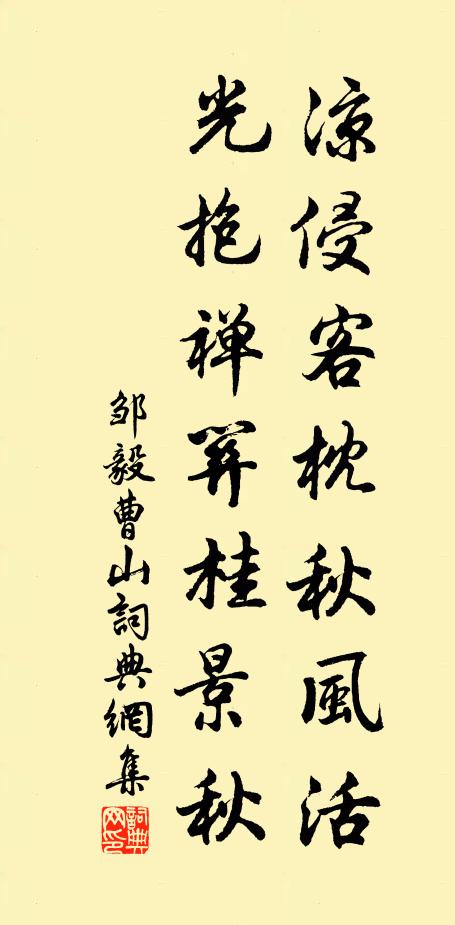 涼侵客枕秋風活
光抱禅関桂景秋
邹毅曹山詞典網集
詞典网印